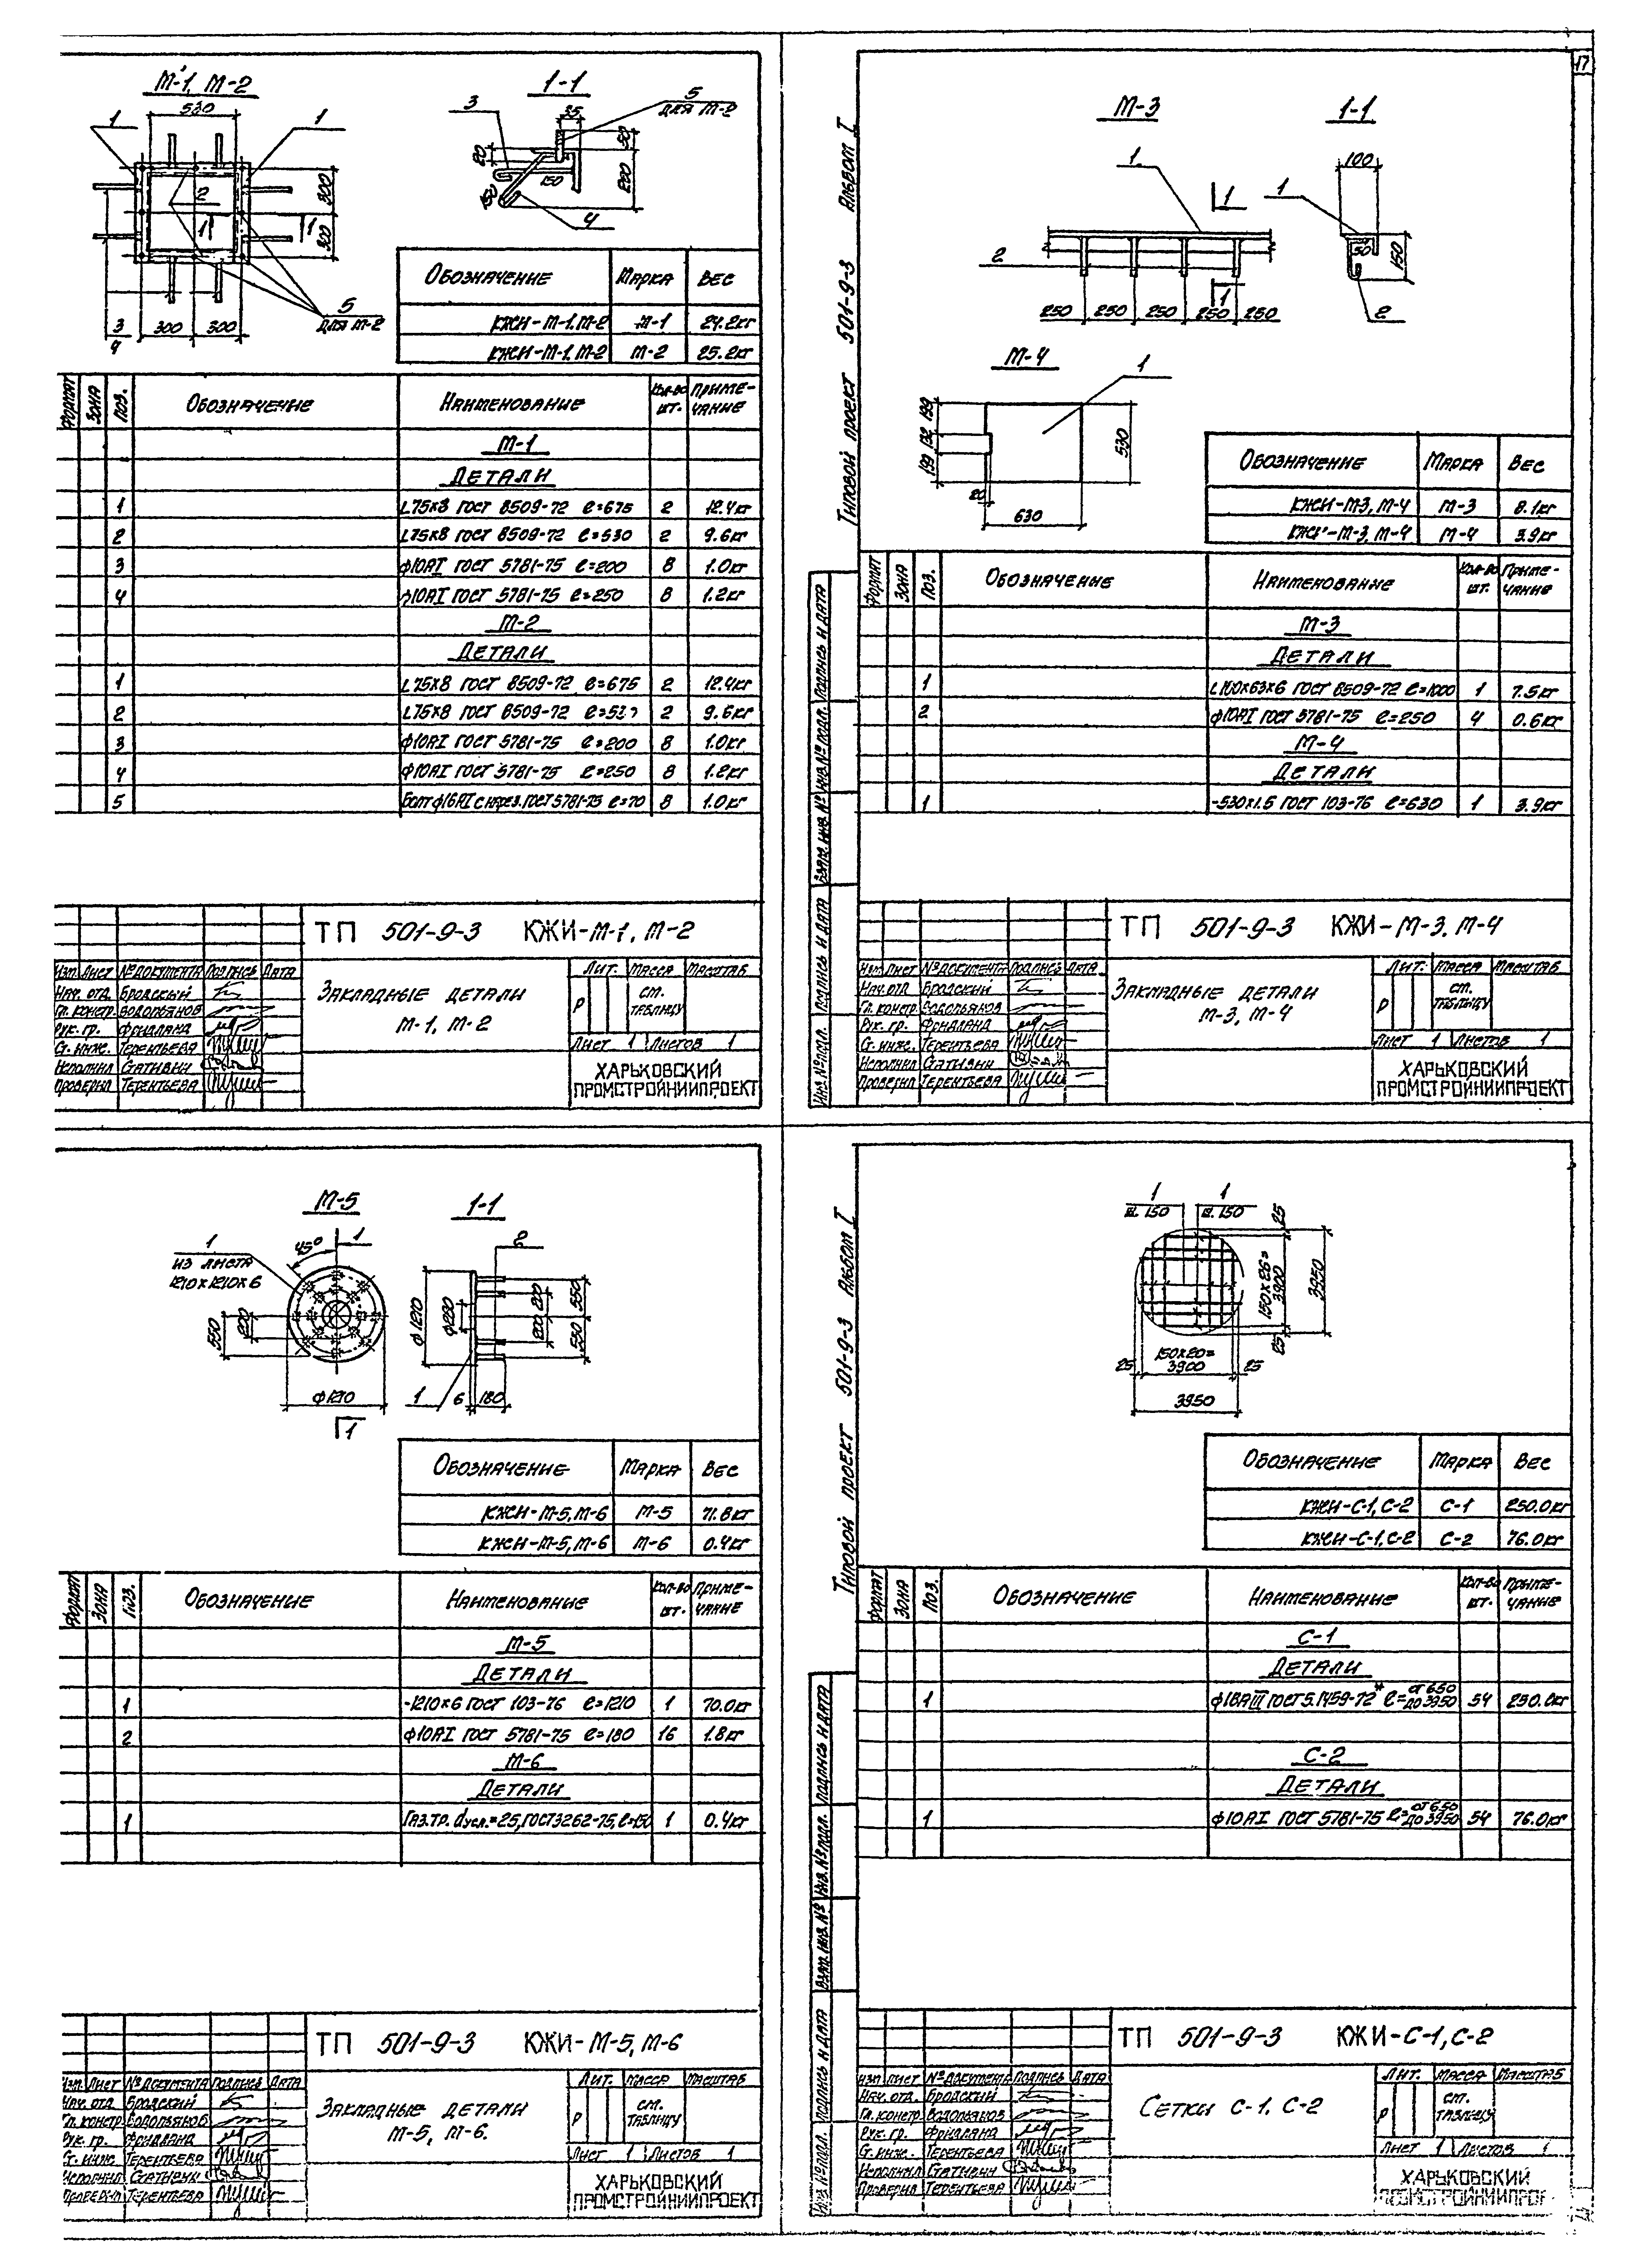 17
М-1, М-2
530
1
1
2
1
1
300
300
300
300
3
4
5
для М-2
1-1
3
5
для М-2
35
20
50
200
150
150
4
Обозначение Марка Вес
КЖИ-М-1, М-2 М-1 24.2кг
КЖИ-М-1, М-2 М-2 25.2кг
Формат Зона Поз. Обозначение Наименование Кол-во шт. Примечание
М-1
Детали
1 L75х8 ГОСТ 8509-72 ℓ=675 2 12.4кг
2 L75х8 ГОСТ 8509-72 ℓ=530 2 9.6кг
3 ф10АI ГОСТ 5781-75 ℓ=200 8 1.0кг
4 ф10АI ГОСТ 5781-75 ℓ=250 8 1.2кг
М-2
Детали
1 L75х8 ГОСТ 8509-72 ℓ=675 2 12.4кг
2 L75х8 ГОСТ 8509-72 ℓ=530 2 9.6кг
3 ф10АI ГОСТ 5781-75 ℓ=200 8 1.0кг
4 ф10АI ГОСТ 5781-75 ℓ=250 8 1.2кг
5 Болт ф16АI с нарез. ГОСТ 5781-75 ℓ=70 8 1.0кг
ТП 501-9-3 КЖИ-М-1, М-2
Изм. Лист № документа Подпись Дата
Нач. отд. Бродский
Гл. констр. Водопьянов
Рук. гр. Фридланд
Ст. инж. Терентьева
Исполнил Стативин
Проверил Терентьева
Закладные детали
М-1, М-2
Лит. Масса Масштаб
Р см. таблицу
Лист 1 Листов 1
ХАРЬКОВСКИЙ
ПРОМСТРОЙНИИПРОЕКТ
Типовой проект 501-9-3 Альбом I
М-3
1
1
2
250 250 250 250 250
1
1-1
100
1
50
150
2
М-4
1
199
132
199
530
20
630
Обозначение Марка Вес
КЖИ-М-3, М-4 М-3 8.1кг
КЖИ-М-3, М-4 М-4 3.9кг
Формат Зона Поз. Обозначение Наименование Кол-во шт. Примечание
М-3
Детали
1 L100х63х6 ГОСТ 8509-72 ℓ=1000 1 7.5кг
2 ф10АI ГОСТ 5781-75 ℓ=250 4 0.6кг
М-4
Детали
1 -530х1.5 ГОСТ 103-76 ℓ=630 1 3.9кг
Инв. № подл. Подпись и дата Взам. инв. № Инв. № подл. Подпись и дата
ТП 501-9-3 КЖИ-М-3, М-4
Изм. Лист № документа Подпись Дата
Нач. отд. Бродский
Гл. констр. Водопьянов
Рук. гр. Фридланд
Ст. инж. Терентьева
Исполнил Стативин
Проверил Терентьева
Закладные детали
М-3, М-4
Лит. Масса Масштаб
Р см. таблицу
Лист 1 Листов 1
ХАРЬКОВСКИЙ
ПРОМСТРОЙНИИПРОЕКТ
М-5
1
из листа
1210х1210х6
45°
1
550
200
ф1210
1
1-1
2
ф1210
ф280
200
200
550
550
1
6
180
Обозначение Марка Вес
КЖИ-М-5, М-6 М-5 71.8кг
КЖИ-М-5, М-6 М-6 0.4кг
Формат Зона Поз. Обозначение Наименование Кол-во шт. Примечание
М-5
Детали
1 -1210х6 ГОСТ 103-76 ℓ=1210 1 70.0кг
2 ф10АI ГОСТ 5781-75 ℓ=180 16 1.8кг
М-6
Детали
1 Газ.тр. dусл.=25, ГОСТ 3262-75, ℓ=150 1 0.4кг
ТП 501-9-3 КЖИ-М-5, М-6
Изм. Лист № документа Подпись Дата
Нач. отд. Бродский
Гл. констр. Водопьянов
Рук. гр. Фридланд
Ст. инж. Терентьева
Исполнил Стативин
Проверил Терентьева
Закладные детали
М-5, М-6.
Лит. Масса Масштаб
Р см. таблицу
Лист 1 Листов 1
ХАРЬКОВСКИЙ
ПРОМСТРОЙНИИПРОЕКТ
Типовой проект 501-9-3 Альбом I
1
ш. 150
1
ш. 150
25
150х26=
3900
25
3950
150х20=
3900
25
25
3950
Обозначение Марка Вес
КЖИ-С-1, С-2 С-1 250.0кг
КЖИ-С-1, С-2 С-2 76.0кг
Формат Зона Поз. Обозначение Наименование Кол-во шт. Примечание
С-1
Детали
1 ф18АIII ГОСТ 5.1459-72* ℓ= от 650 до 3950 54 250.0кг
С-2
Детали
1 ф10АI ГОСТ 5781-75 ℓ= от 650 до 3950 54 76.0кг
Инв. № подл. Подпись и дата Взам. инв. № Инв. № подл. Подпись и дата
ТП 501-9-3 КЖИ-С-1, С-2
Изм. Лист № документа Подпись Дата
Нач. отд. Бродский
Гл. констр. Водопьянов
Рук. гр. Фридланд
Ст. инж. Терентьева
Исполнил Стативин
Проверил Терентьева
Сетки С-1, С-2
Лит. Масса Масштаб
Р см. таблицу
Лист 1 Листов 1
ХАРЬКОВСКИЙ